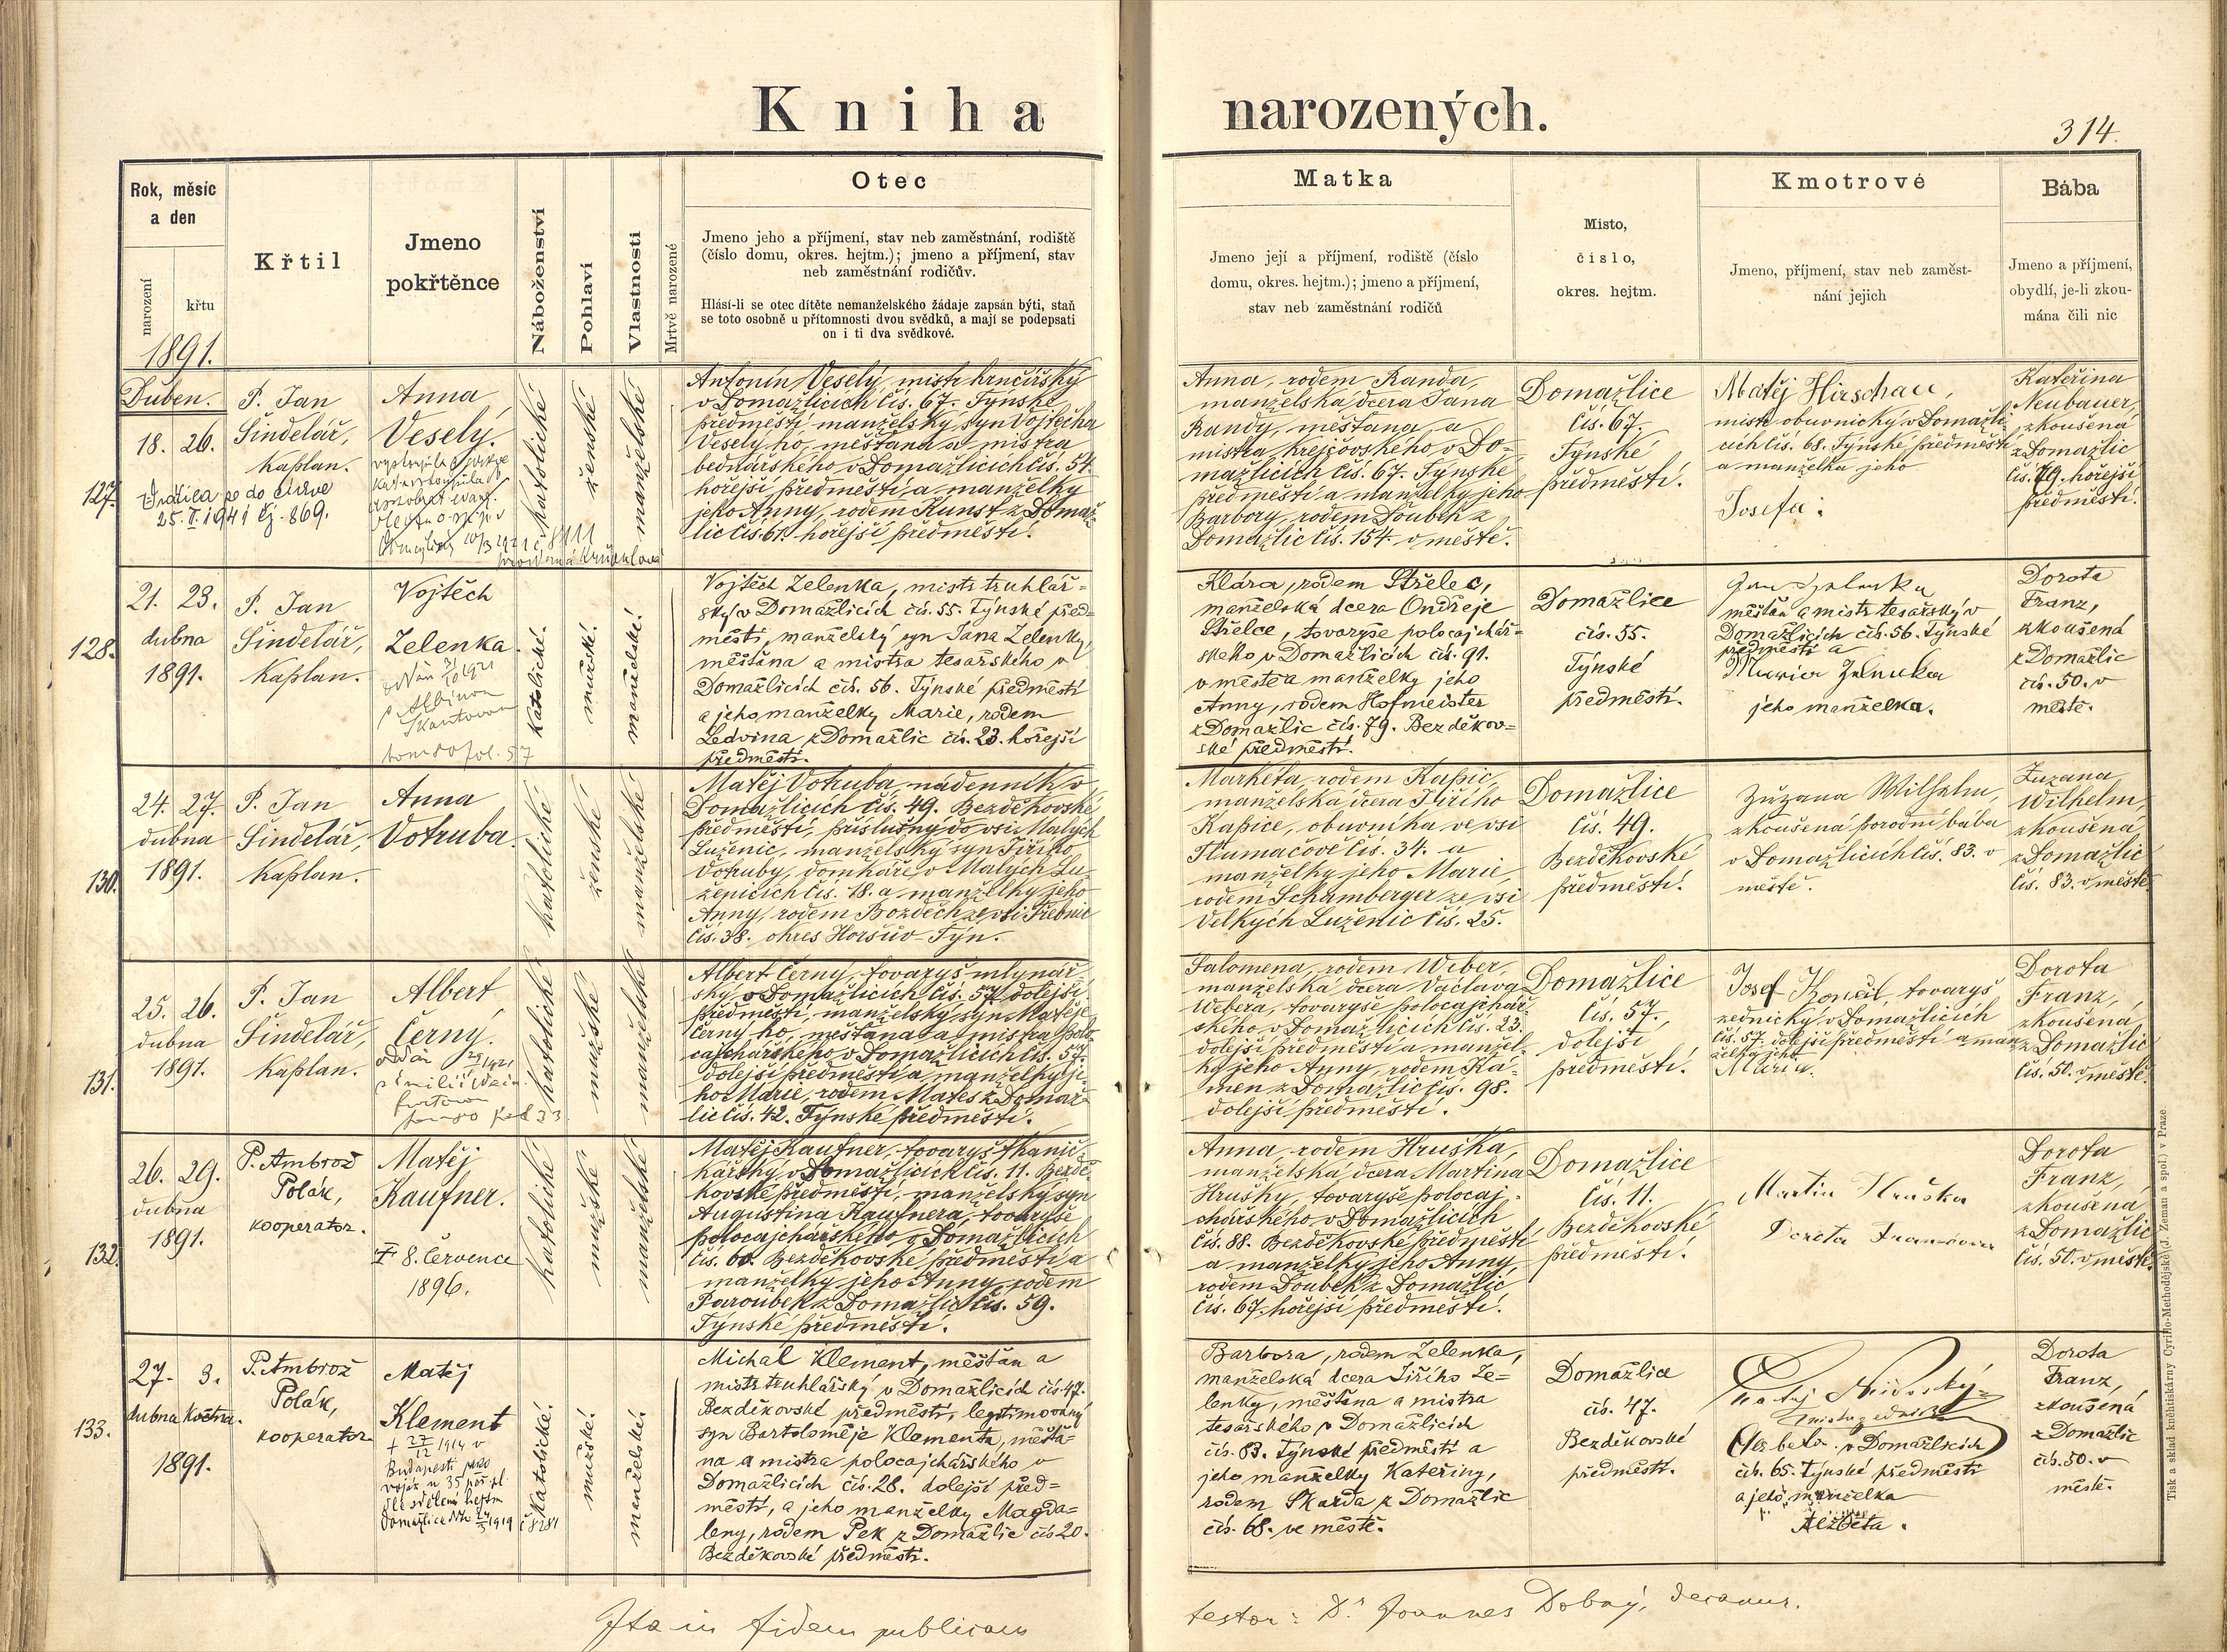 Kniha narozených.
314.
Rok, měsíc
a den
narození
křtu
1891.
Křtil
Jmeno
pokřtěnce
Náboženství
Pohlaví
Vlastnosti
Mrtvě narozené
Otec
Jmeno jeho a příjmení, stav neb zaměstnání, rodiště
(číslo domu, okres. hejtm.); jmeno a příjmení, stav
neb zaměstnání rodičův.
Hlásí-li se otec dítěte nemanželského žádaje zapsán býti, staň
se toto osobně u přítomnosti dvou svědků, a mají se podepsati
on i ti dva svědkové.
Matka
Jmeno její a příjmení, rodiště (číslo
domu, okres. hejtm.); jmeno a příjmení,
stav neb zaměstnání rodičů
Místo,
číslo,
okres. hejtm.
Kmotrové
Jmeno, příjmení, stav neb zaměst-
nání jejich
Bába
Jmeno a příjmení,
obydlí, je-li zkou-
mána čili nic
127.
Duben.
18. 26.
Vrátila se do církve
25. II. 1941 čj. 869.
P. Jan
Šindelář,
kaplan.
Anna
Veselý.
katolické
ženské
manželské
Antonín Veselý, mistr hrnčířský
v Domažlicích čís. 67. Týnské
předměstí, manželský syn Vojtěcha
Veselý-ho, měšťana a mistra
bednářského v Domažlicích čís. 54.
hořejší předměstí, a manželky
jeho Anny, rodem Kunst z Domaž-
lic čís. 61. hořejší předměstí.
Anna, rodem Randa,
manželská dcera Jana
Randy, měšťana a
mistra krejčovského v Do-
mažlicích čís. 67. Týnské
předměstí a manželky jeho
Barbory, rodem Doubek z
Domažlic čís. 154. v městě.
Domažlice
čís. 67.
Týnské
předměstí.
Matěj Hirschau,
mistr obuvnický v Domažli-
cích čís. 68. Týnské předměstí
a manželka jeho
Josefa.
Kateřina
Neubauer,
zkoušená
z Domažlic
čís. 79. hořejší
předměstí.
128.
21. 23.
dubna
1891.
P. Jan
Šindelář,
kaplan.
Vojtěch
Zelenka.
oddán 31/10 1921
s Albínou
Skantovou
tom 80 fol. 57
katolické.
mužské.
manželské.
Vojtěch Zelenka, mistr truhlář-
ský v Domažlicích čís. 55. Týnské před-
městí, manželský syn Jana Zelenky,
měšťana a mistra tesařského v
Domažlicích čís. 56. Týnské předměstí
a jeho manželky Marie, rodem
Ledvina z Domažlic čís. 23. hořejší
předměstí.
Klára, rodem Střelec,
manželská dcera Ondřeje
Střelce, tovaryše polocajchář-
ského v Domažlicích čís. 91.
v městě a manželky jeho
Anny, rodem Hofmeister
z Domažlic čís. 79. Bezděkov-
ské předměstí.
Domažlice
čís. 55.
Týnské
předměstí.
Jan Zelenka
měšťan a mistr tesařský v
Domažlicích čís. 56. Týnské
předměstí a
Marie Zelenka
jeho manželka.
Dorota
Franz,
zkoušená
z Domažlic
čís. 50. v
městě.
130.
24. 27.
dubna
1891.
P. Jan
Šindelář,
kaplan.
Anna
Votruba.
katolické
ženské
manželské
Matěj Votruba, nádenník v
Domažlicích čís. 49. Bezděkovské
předměstí, příslušný do vsi Malých
Luženic, manželský syn Jiřího
Votruby, domkáře v Malých Lu-
ženicích čís. 18. a manželky jeho
Anny, rodem Bozděch ze vsi Třebnic
čís. 38. okres Horšův-Týn.
Markéta, rodem Kapic,
manželská dcera Jiřího
Kapice, obuvníka ve vsi
Tlumačově čís. 34. a
manželky jeho Marie,
rodem Schamberger ze vsi
Velkých Luženic čís. 25.
Domažlice
čís. 49.
Bezděkovské
předměstí.
Zuzana Wilhelm,
zkoušená porodní bába
v Domažlicích čís. 83. v
městě.
Zuzana
Wilhelm,
zkoušená
z Domažlic
čís. 83. v městě.
131.
25. 26.
dubna
1891.
P. Jan
Šindelář,
kaplan.
Albert
Černý.
katolické
mužské
manželské
Albert Černý, tovaryš mlynář-
ský v Domažlicích čís. 57. dolejší
předměstí, manželský syn Matěje
Černý-ho, měšťana a mistra polo-
cajchářského v Domažlicích čís. 57.
dolejší předměstí a manželky je-
ho Marie, rodem Mates z Domaž-
lic čís. 42. Týnské předměstí.
Salomena, rodem Weber,
manželská dcera Václava
Webera, tovaryše polocajchář-
ského v Domažlicích čís. 23.
dolejší předměstí a manžel-
ky jeho Anny, rodem Ká-
men z Domažlic čís. 98.
dolejší předměstí.
Domažlice
čís. 57.
dolejší
předměstí.
Josef Konečl, tovaryš
zednický v Domažlicích
čís. 57. dolejší předměstí a man-
želka jeho
Maria.
Dorota
Franz,
zkoušená
z Domažlic
čís. 50. v městě.
132.
26. 29.
dubna
1891.
P. Ambrož
Polák,
kooperator.
Matěj
Kaufner.
† 8. července
1896.
katolické
mužské
manželské
Matěj Kaufner, tovaryš tkanič-
kářský v Domažlicích čís. 11. Bezdě-
kovské předměstí, manželský syn
Augustina Kaufnera, tovaryše
polocajchářského v Domažlicích
čís. 60. Bezděkovské předměstí a
manželky jeho Anny, rodem
Paroubek z Domažlic čís. 59.
Týnské předměstí.
Anna, rodem Hruška,
manželská dcera Martina
Hrušky, tovaryše polocaj-
chářského v Domažlicích
čís. 88. Bezděkovské předměstí
a manželky jeho Anny,
rodem Doubek z Domažlic
čís. 67. hořejší předměstí.
Domažlice
čís. 11.
Bezděkovské
předměstí.
Martin Hruška
Doreta Franzóvia
Dorota
Franz,
zkoušená
z Domažlic
čís. 50. v městě.
133.
27. 3.
dubna května.
1891.
P. Ambrož
Polák,
kooperator.
Matěj
Klement
† 27/12 1914 v
Budapešti jako
voják u 35 pěš. pl.
dle sdělení hejtm
Domažlice 24/3 1919 č 8281
katolické.
mužské.
manželské.
Michal Klement, měšťan a
mistr truhlářský v Domažlicích čís. 47.
Bezděkovské předměstí, legitimovaný
syn Bartoloměje Klementa, měšťa-
na a mistra polocajchářského v
Domažlicích čís. 28. dolejší před-
městí, a jeho manželky Magda-
leny, rodem Pek z Domažlic čís 20.
Bezděkovské předměstí.
Barbora, rodem Zelenka,
manželská dcera Jiřího Ze-
lenky, měšťana a mistra
tesařského v Domažlicích
čís. 83. Týnské předměstí a
jeho manželky Kateřiny,
rodem Skarda z Domažlic
čís. 68. ve městě.
Domažlice
čís. 47.
Bezděkovské
předměstí.
v Domažlicích
čís. 65. Týnské předměstí
a jeho manželka
Alžběta.
Dorota
Franz,
zkoušená
z Domažlic
čís. 50. v
městě.
Ita in fidem publicam
testor: Dr Joannes Dobný, decanus.
Tisk a sklad knihtiskárny Cyrillo-Methodějské (J. Zeman a spol.) v Praze